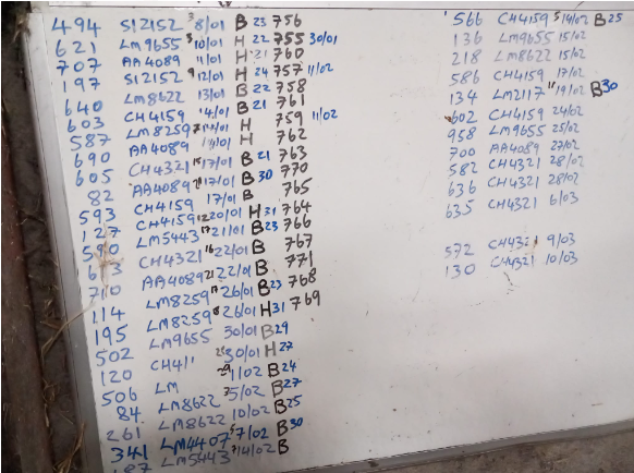 494 SI2152 3 8/01 B 23 756
621 LM9655 5 10/01 H 22 755 30/01
707 AA4089 11/01 H 21 760
197 SI2152 9 12/01 H 24 757 11/02
640 LM8622 13/01 B 22 758
603 CH4159 14/01 B 21 761
587 LM8259 H 759 11/02
690 AA4089 H 762
605 CH4321 15 17/01 B 21 763
82 AA4089 17/01 B 30 770
593 CH4159 17/01 B 765
127 CH4159 20/01 H 31 764
590 LM5443 21/01 B 23 766
CH4321 16 22/01 B 767
710 AA4089 21 22/01 B 771
114 LM8259 26/01 B 23 768
195 LM8259 26/01 H 31 769
502 LM9655 30/01 B 29
120 CH41 30/01 H 27
506 LM 1/02 B 24
84 LM8622 5/02 B 27
261 LM8622 10/02 B 25
341 LM4407 5 7/02 B 30
187 LM5443 14/02 B
566 CH4159 5 14/02 B 25
136 LM9655 15/02
218 LM8622 15/02
586 CH4159 17/02
134 LM2117 19/02 B 30
602 CH4159 24/02
958 LM9655 25/02
700 AA4089 27/02
582 CH4321 28/02
636 CH4321 28/02
635 CH4321 6/03
572 CH4321 9/03
130 CH4321 10/03